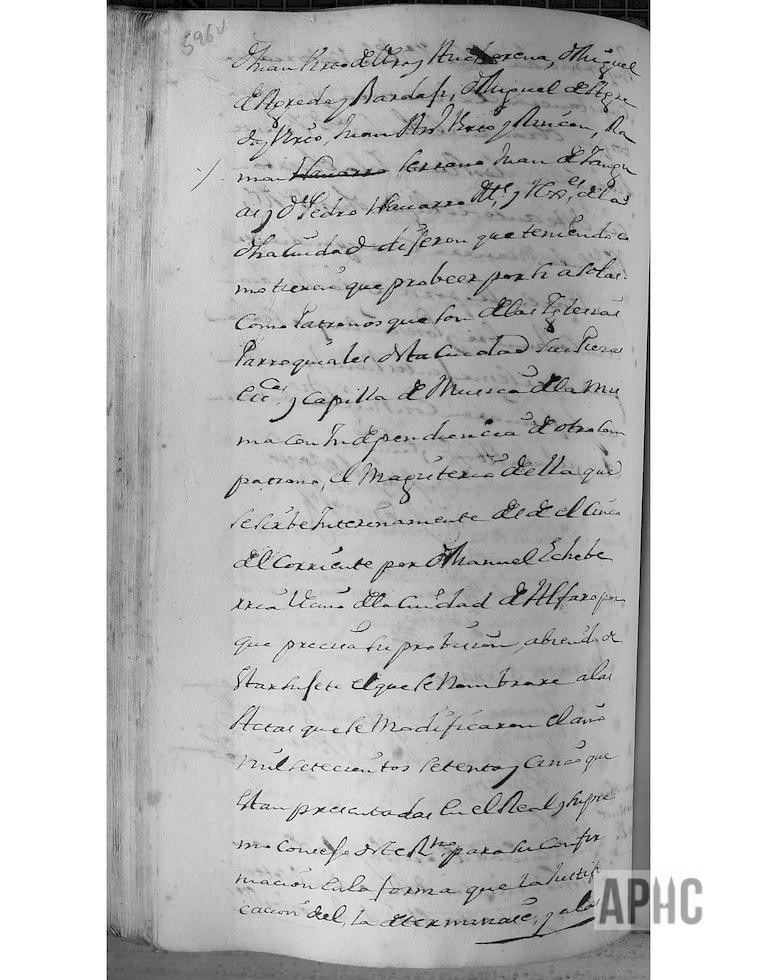 596v
de Agreda y Bardaji, Dn Miguel de Agre
da y Virto, Juan Anto. Virto y Rincon, Ra
mon Navarro Serrano Juan de
as, y Dn Pedro Navarro
dha Ciudad dijeron que teniendo co
mo tienen que probeer por si a solas
Como Patronos que son de las Iglesias
Parroquiales desta Ciudad sus Piezas
Ecc.cas, y Capilla de Musica de la mis
ma con Independiencia de otro Com
patrono, el Magisterio de ella que
se sirbe Interinamente desde el Cinco
del Corriente por Dn Manuel Echebe
rria Vecino de la Ciudad de Alfaro por
que precisa su probision, abiendo de
star sujeto el que se Nombrare a las
Actas que se Modificaron el año
mil setecientos setenta y Cinco que
stan presentadas en el Real y Supre
mo Consejo deste Rno, para su Confir
macion en la forma que la Justifi
cacion del, la determinase, y a las
APHC